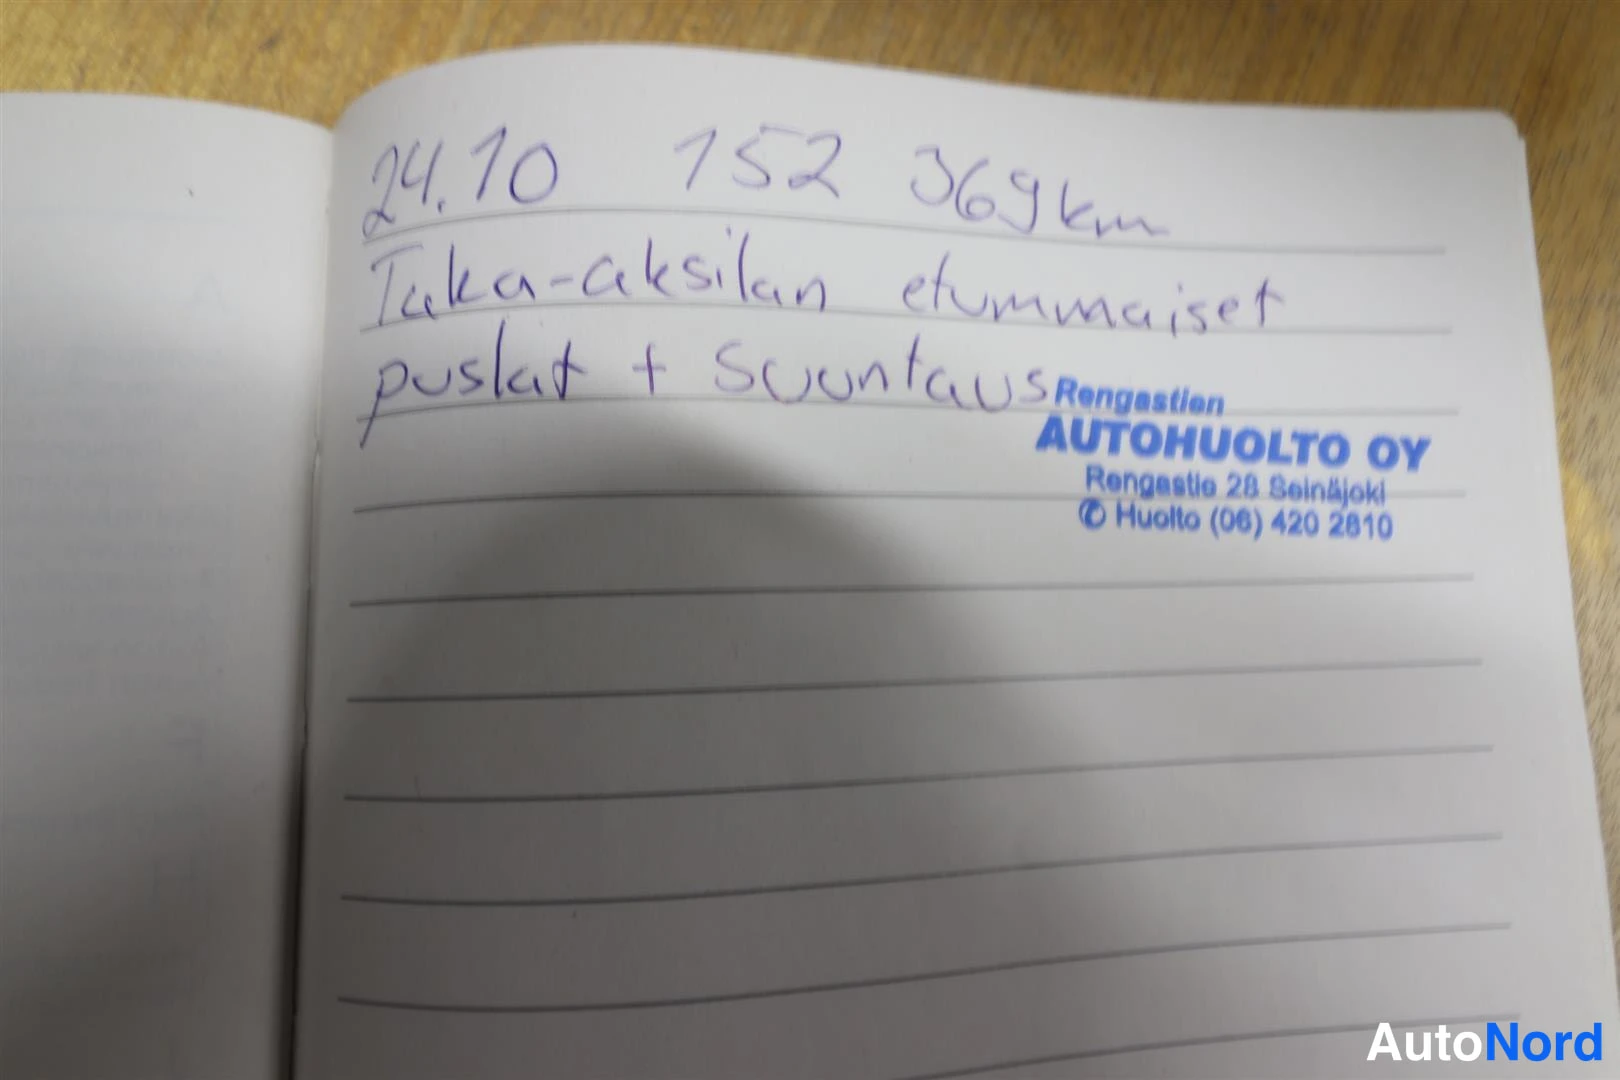 24.10 152 369km
Taka-aksilan etummaiset
puslat + Suuntaus
Rengastien
AUTOHUOLTO OY
Rengastie 28 Seinäjoki
✆ Huolto (06) 420 2810
AutoNord